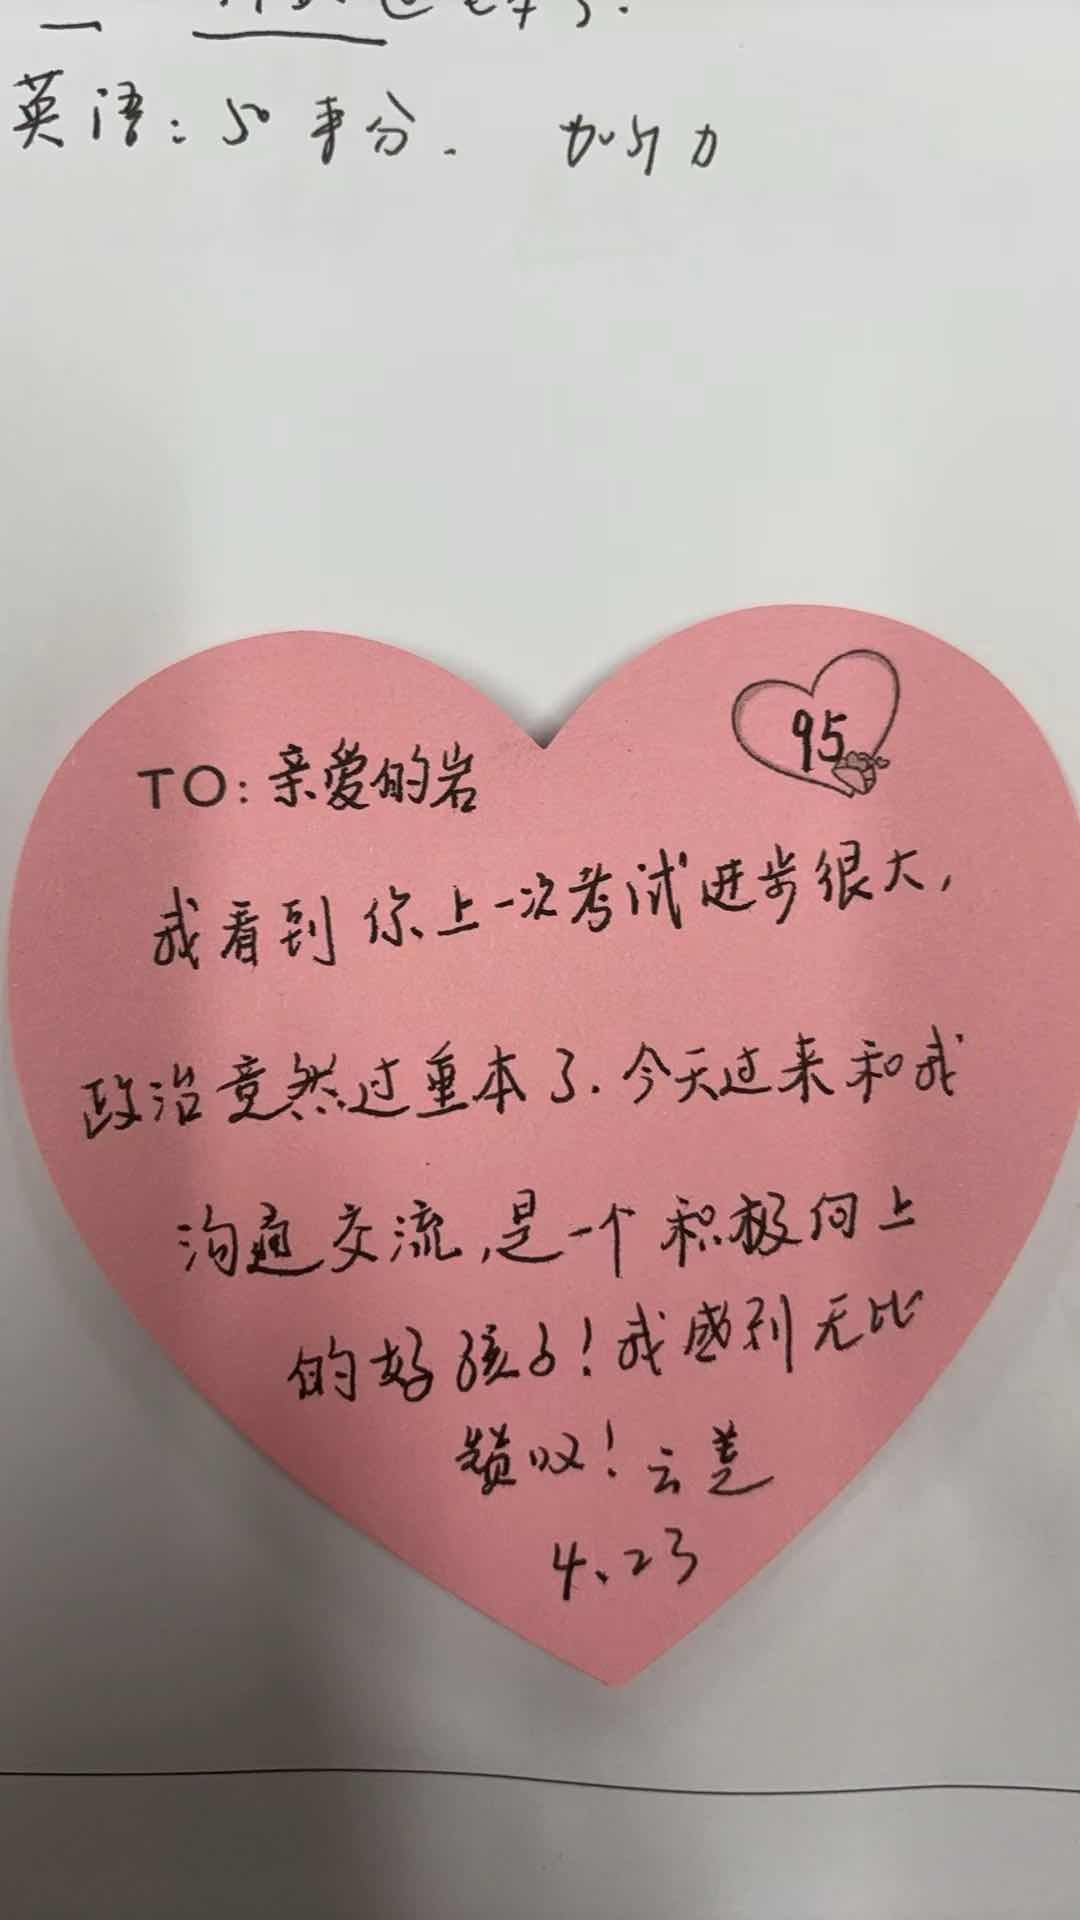 英语：50 半分. 加油
95
TO: 亲爱的岩
我看到你上一次考试进步很大，
政治竟然过重本了.今天过来和我
沟通交流,是一个积极向上
的好孩子！我感到无比
赞叹！云差
4、23